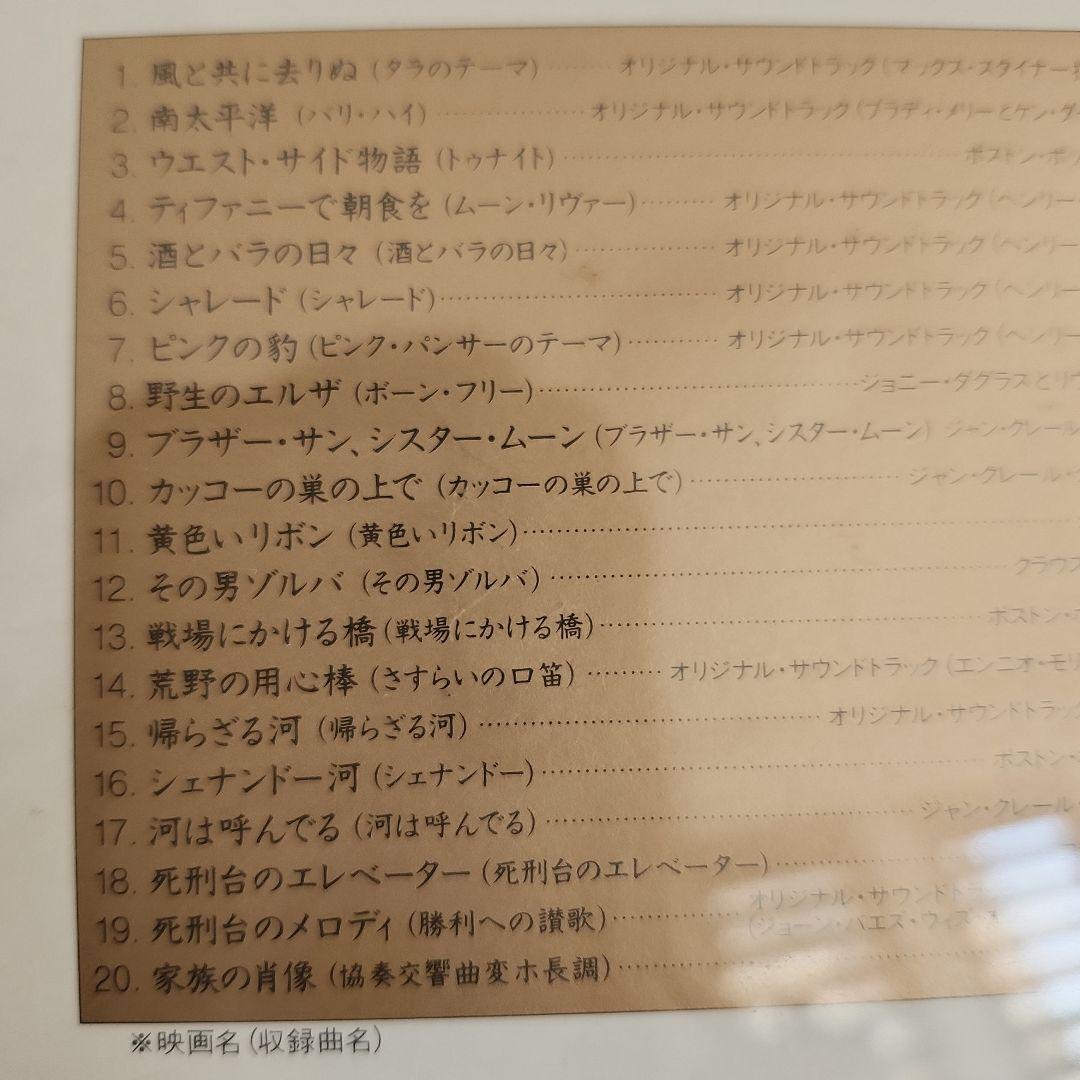 1. 風と共に去りぬ (タラのテーマ) ········ オリジナル・サウンドトラック (マックス・スタイナー
2. 南太平洋 (バリ・ハイ) ·················· オリジナル・サウンドトラック (ブラディ・メリーとケン・ダ
3. ウエスト・サイド物語 (トゥナイト) ·················· ボストン・ポ
4. ティファニーで朝食を (ムーン・リヴァー) ·········· オリジナル・サウンドトラック (ヘンリー・
5. 酒とバラの日々 (酒とバラの日々) ·················· オリジナル・サウンドトラック (ヘンリー・
6. シャレード (シャレード) ·················· オリジナル・サウンドトラック (ヘンリー・
7. ピンクの豹 (ピンク・パンサーのテーマ) ··········· オリジナル・サウンドトラック (ヘンリー・
8. 野生のエルザ (ボーン・フリー) ·················· ジョニー・ダグラスとリ
9. ブラザー・サン、シスター・ムーン (ブラザー・サン、シスター・ムーン) ジャン・クレール
10. カッコーの巣の上で (カッコーの巣の上で) ·················· ジャン・クレール・
11. 黄色いリボン (黄色いリボン) ··················
12. その男ゾルバ (その男ゾルバ) ·················· クラウス
13. 戦場にかける橋 (戦場にかける橋) ·················· ボストン・
14. 荒野の用心棒 (さすらいの口笛) ········· オリジナル・サウンドトラック (エンニオ・モリ
15. 帰らざる河 (帰らざる河) ·················· オリジナル・サウンドトラック
16. シェナンドー河 (シェナンドー) ·················· ボストン・
17. 河は呼んでる (河は呼んでる) ·················· ジャン・クレール
18. 死刑台のエレベーター (死刑台のエレベーター) ··················
19. 死刑台のメロディ (勝利への讃歌) ·················· オリジナル・サウンドトラ
(ジョーン・バエズ・ウィズ・
20. 家族の肖像 (協奏交響曲変ホ長調) ··················
※映画名 (収録曲名)